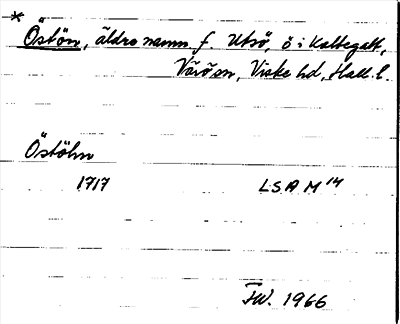 * Östön, äldre namn f. Utsö, ö i Kattegatt,
Värö sn, Viske hd, Hall. l.
Östöhn
1717 LSA M 14
FW. 1966